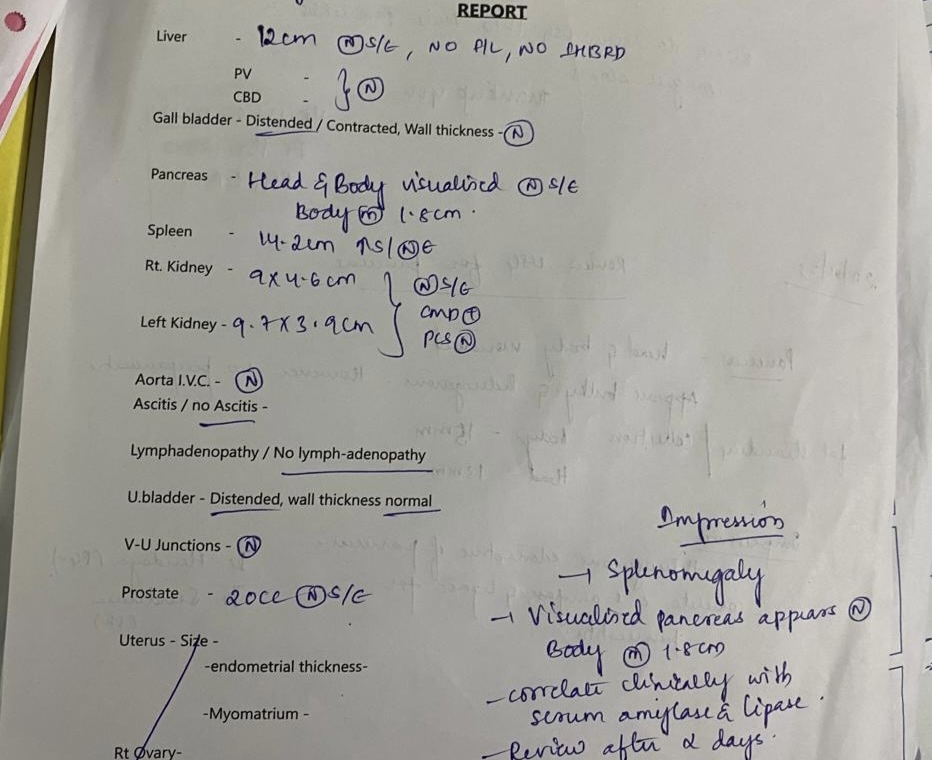 REPORT
Liver - 12cm Ⓝ S/E, NO P/L, NO IHBRD
PV -
CBD - } Ⓝ
Gall bladder - Distended / Contracted, Wall thickness - Ⓝ
Pancreas - Head & Body visualised Ⓝ S/E
Body ⓜ 1.8cm.
Spleen - 14.2cm ↑S/ⓃE
Rt. Kidney - 9x4.6cm } Ⓝ S/E
CMD ⊕
Left Kidney - 9.7x3.9cm PCS Ⓝ
Aorta I.V.C. - Ⓝ
Ascitis / no Ascitis -
Lymphadenopathy / No lymph-adenopathy
U.bladder - Distended, wall thickness normal
V-U Junctions - Ⓝ
Prostate - 20cc Ⓝ S/E
Uterus - Size -
-endometrial thickness-
-Myomatrium -
Rt Ovary-
Impression
→ Splenomegaly
→ Visualised pancreas appears Ⓝ
Body ⓜ 1.8cm
- correlate clinically with
serum amylase & lipase.
- Review after 2 days.